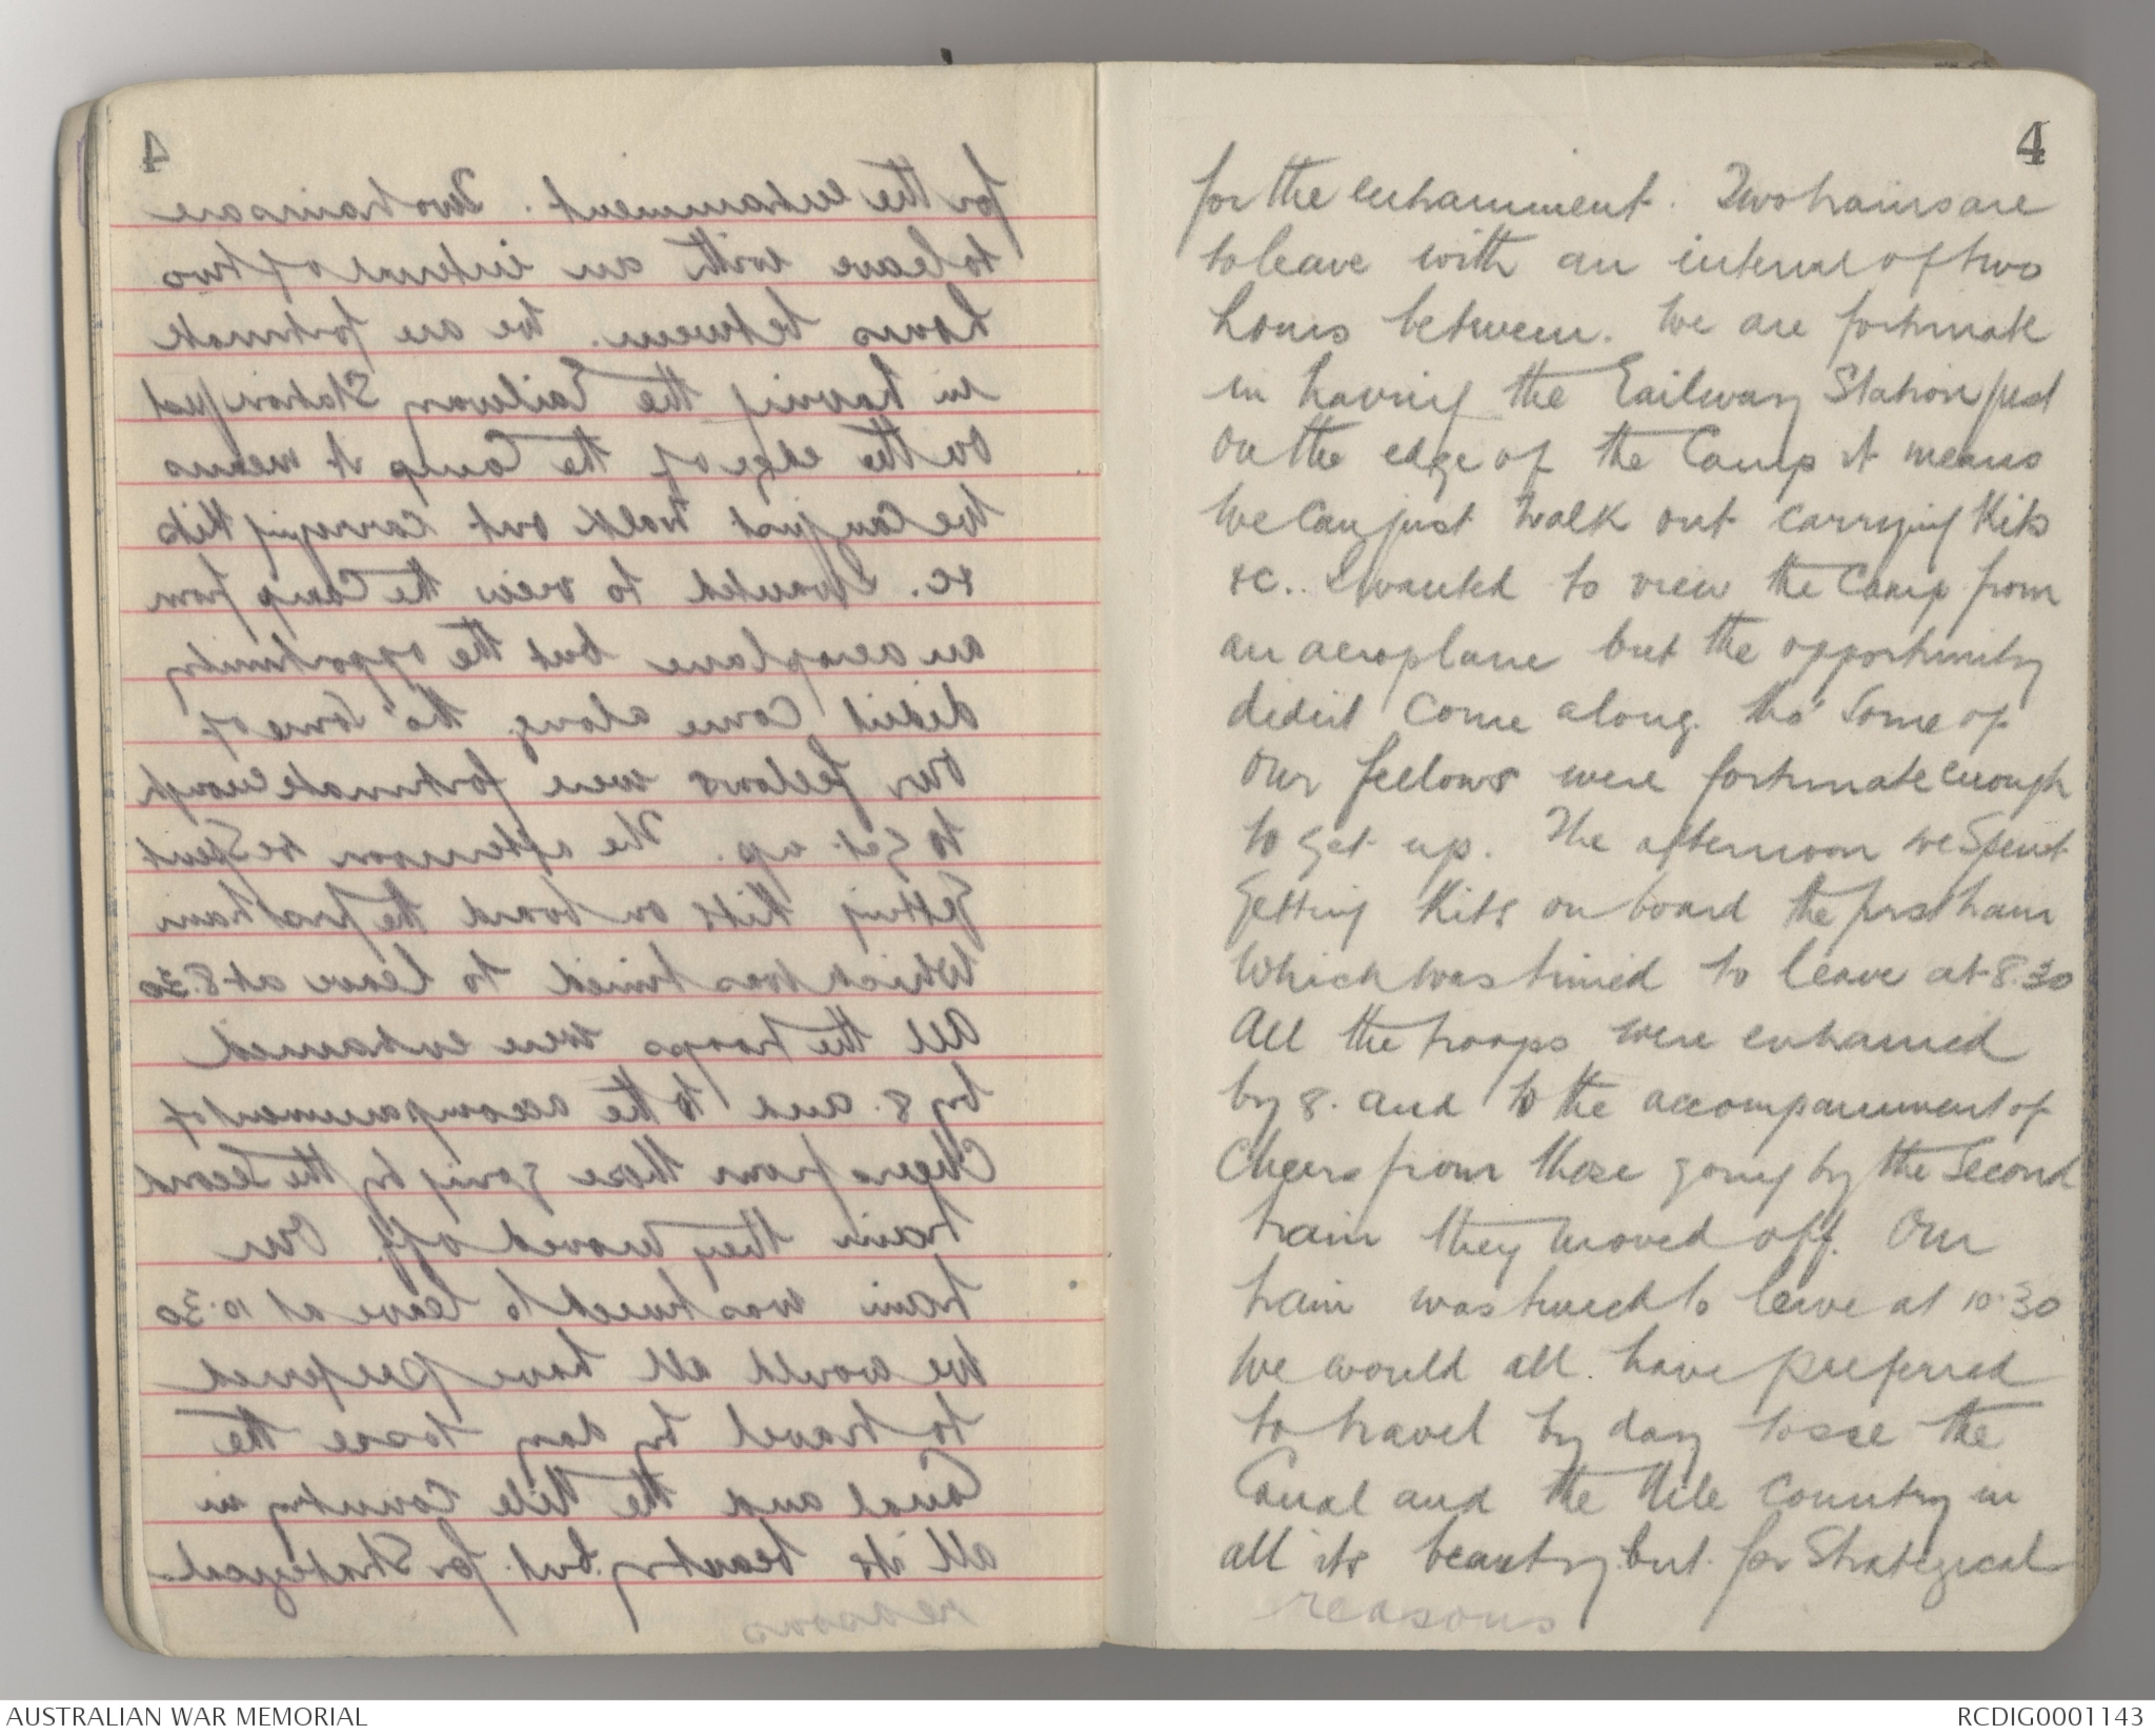 4
for the entrainment. Two trains are
to leave with an interval of two
hours between. We are fortunate
in having the Railway Station just
on the edge of the Camp it means
we can just walk out carrying Kits
&c.. I wanted to view the Camp from
an aeroplane but the opportunity
didn't come along tho' some of
our fellows were fortunate enough
to get up. The afternoon we spent
getting Kits on board the first train
which was timed to leave at 8.30
All the troops were entrained
by 8. and to the accompaniment of
Cheers from those going by the second
train they moved off. Our
train was timed to leave at 10.30
We would all have preferred
to travel by day to see the
Canal and the Nile Country in
all its beauty but for Strategical
reasons
AUSTRALIAN WAR MEMORIAL
RCDIG0001143